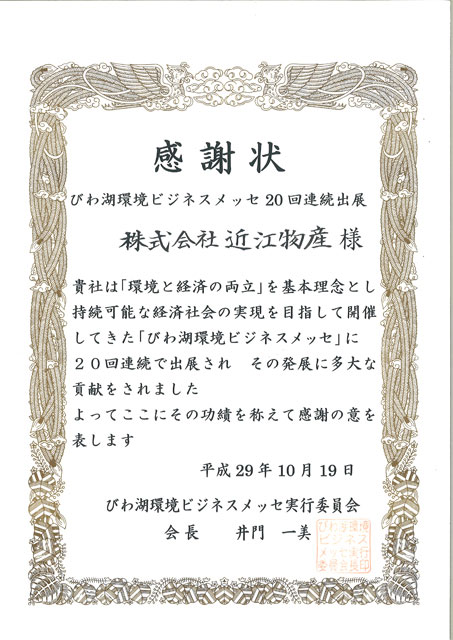 感謝状
びわ湖環境ビジネスメッセ20回連続出展
株式会社近江物産様
貴社は「環境と経済の両立」を基本理念とし
持続可能な経済社会の実現を目指して開催
してきた「びわ湖環境ビジネスメッセ」に
20回連続で出展され　その発展に多大な
貢献をされました
よってここにその功績を称えて感謝の意を
表します
平成29年10月19日
びわ湖環境ビジネスメッセ実行委員会
会長　井門　一美
びわ湖環境
ビジネス
メッセ実行
委員会長印